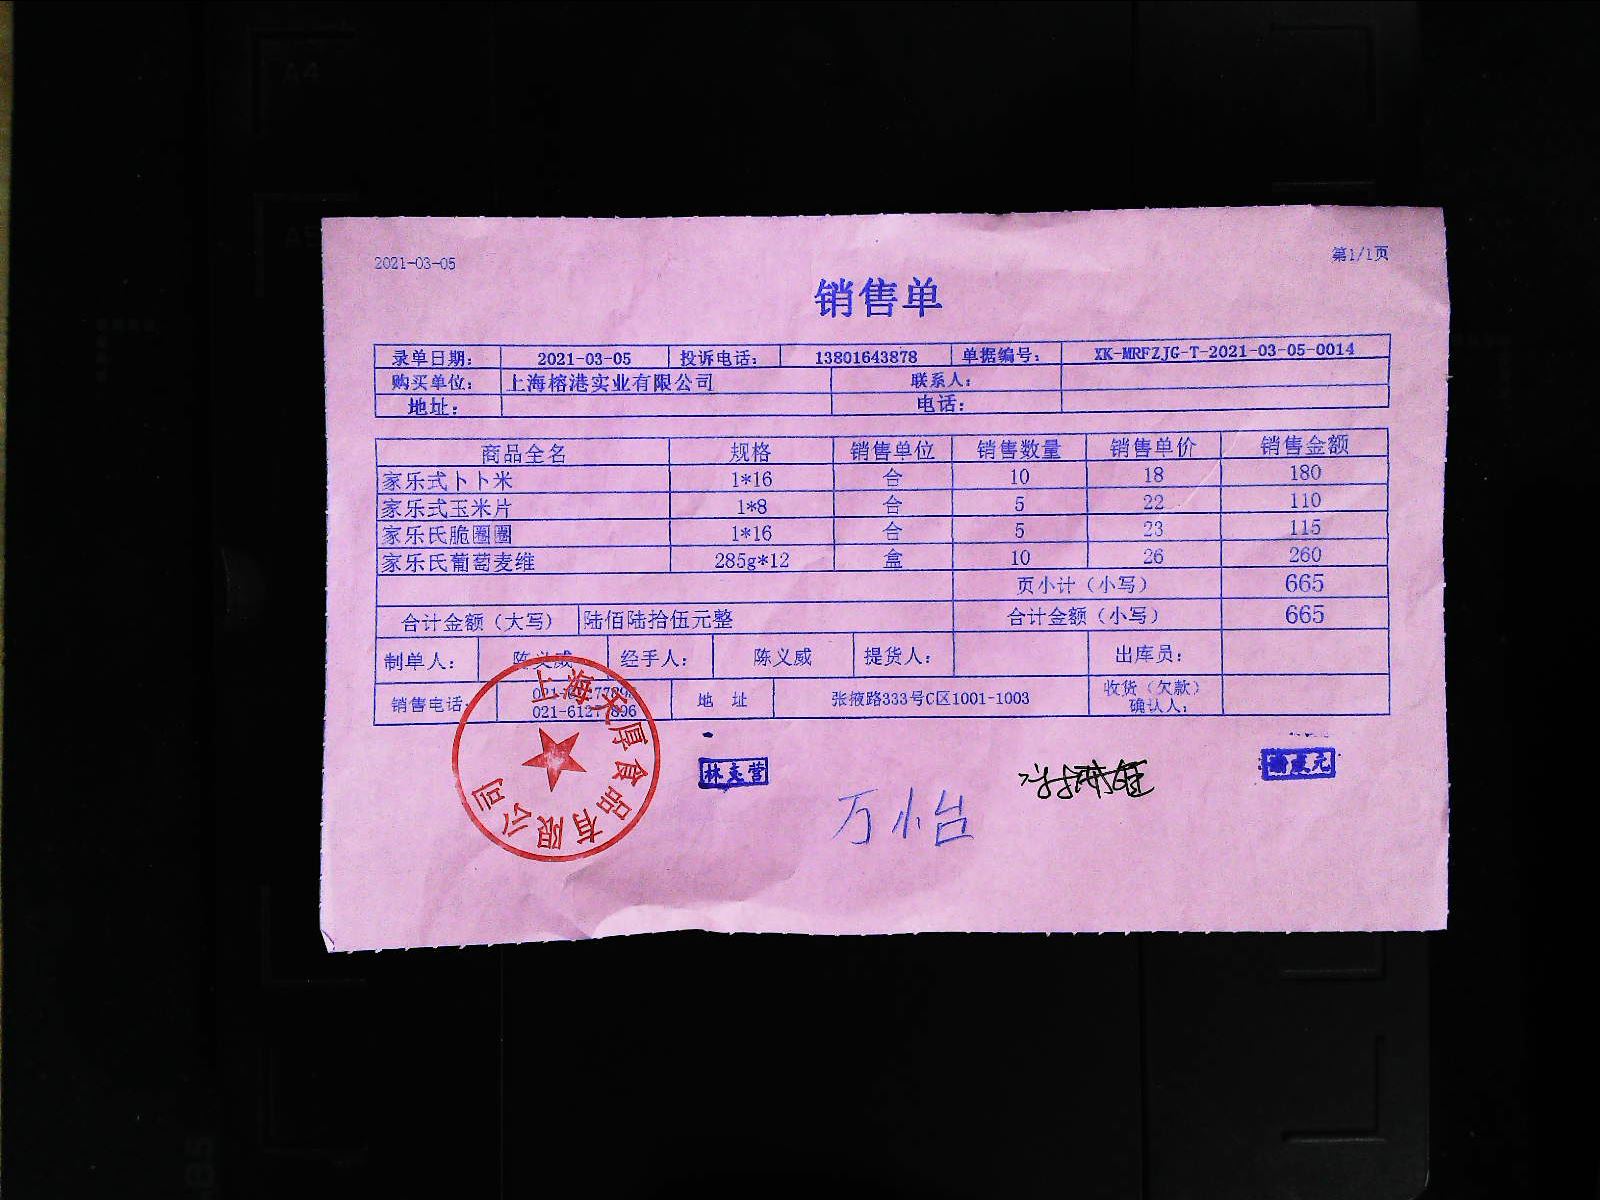 2021-03-05 第1/1页
销售单
录单日期： 2021-03-05 投诉电话： 13801643878 单据编号： XK-MRFZJG-T-2021-03-05-0014
购买单位： 上海榕港实业有限公司 联系人：
地址： 电话：
商品全名 规格 销售单位 销售数量 销售单价 销售金额
家乐式卜卜米 1*16 合 10 18 180
家乐式玉米片 1*8 合 5 22 110
家乐氏脆圈圈 1*16 合 5 23 115
家乐氏葡萄麦维 285g*12 盒 10 26 260
页小计（小写） 665
合计金额（大写） 陆佰陆拾伍元整 合计金额（小写） 665
制单人： 陈义威 经手人： 陈义威 提货人： 出库员：
销售电话： 021-61277896 地 址 张掖路333号C区1001-1003 收货（欠款）确认人：
上海天厚食品有限公司
万怡